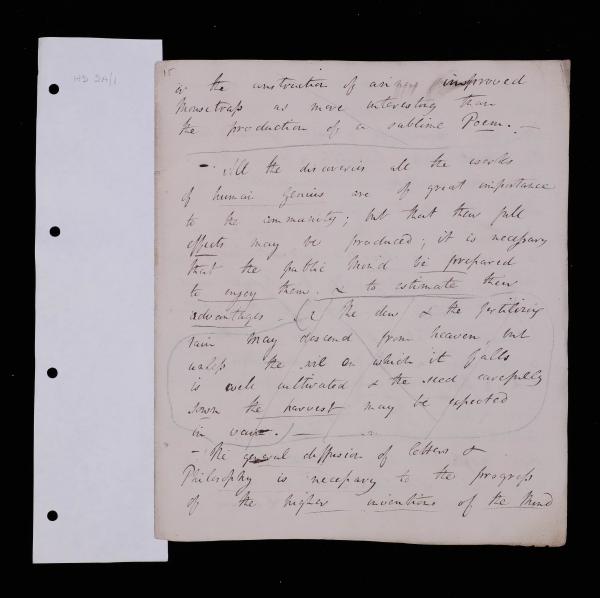 HD 2A/1
15
in the construction of a new improved
Mousetraps as more interesting than
the production of a sublime Poem. —
— All the discoveries all the
of human Genius are of great importance
to the community; but that their full
effects may be produced; it is necessary
that the public should be prepared
to enjoy them. & to estimate their
advantages. The dew & the fertilizing
rain may descend from heaven, but
unless the soil on which it falls
is well cultivated & the seed carefully
sown the harvest may be expected
in vain. —
— The general diffusion of letters &
Philosophy is necessary to the progress
of the higher inventions of the Mind